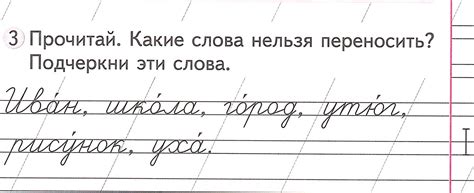 3 Прочитай. Какие слова нельзя переносить?
Подчеркни эти слова.
Ива́н, шко́ла, го́род, утю́г,
рису́нок, уха́.